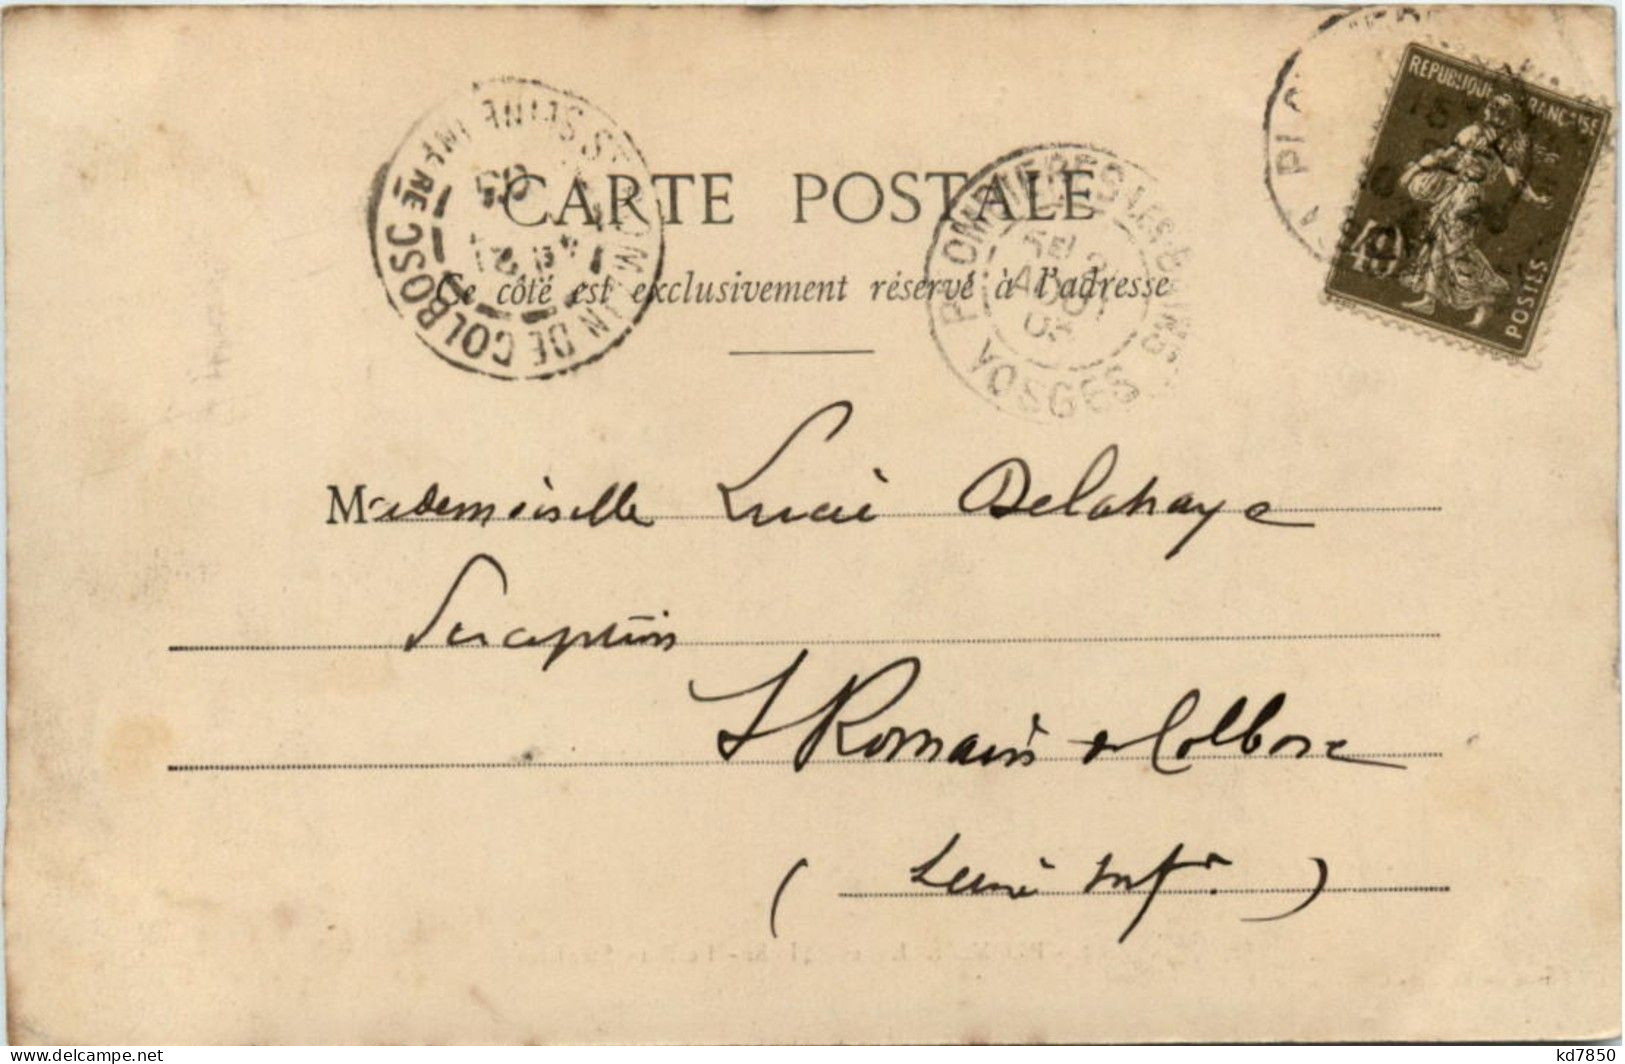 CARTE POSTALE
Ce côté est exclusivement réservé à l'adresse
ST ROMAIN DE COLBOSC
SEINE INFRE
05
PLOMBIERES LES BAINS
VOSGES
AOUT
05
REPUBLIQUE FRANÇAISE
POSTES
Mademoiselle Lucie Delahaye
St Romain de Colbosc
(Seine Infre)
delcampe.net
kd7850